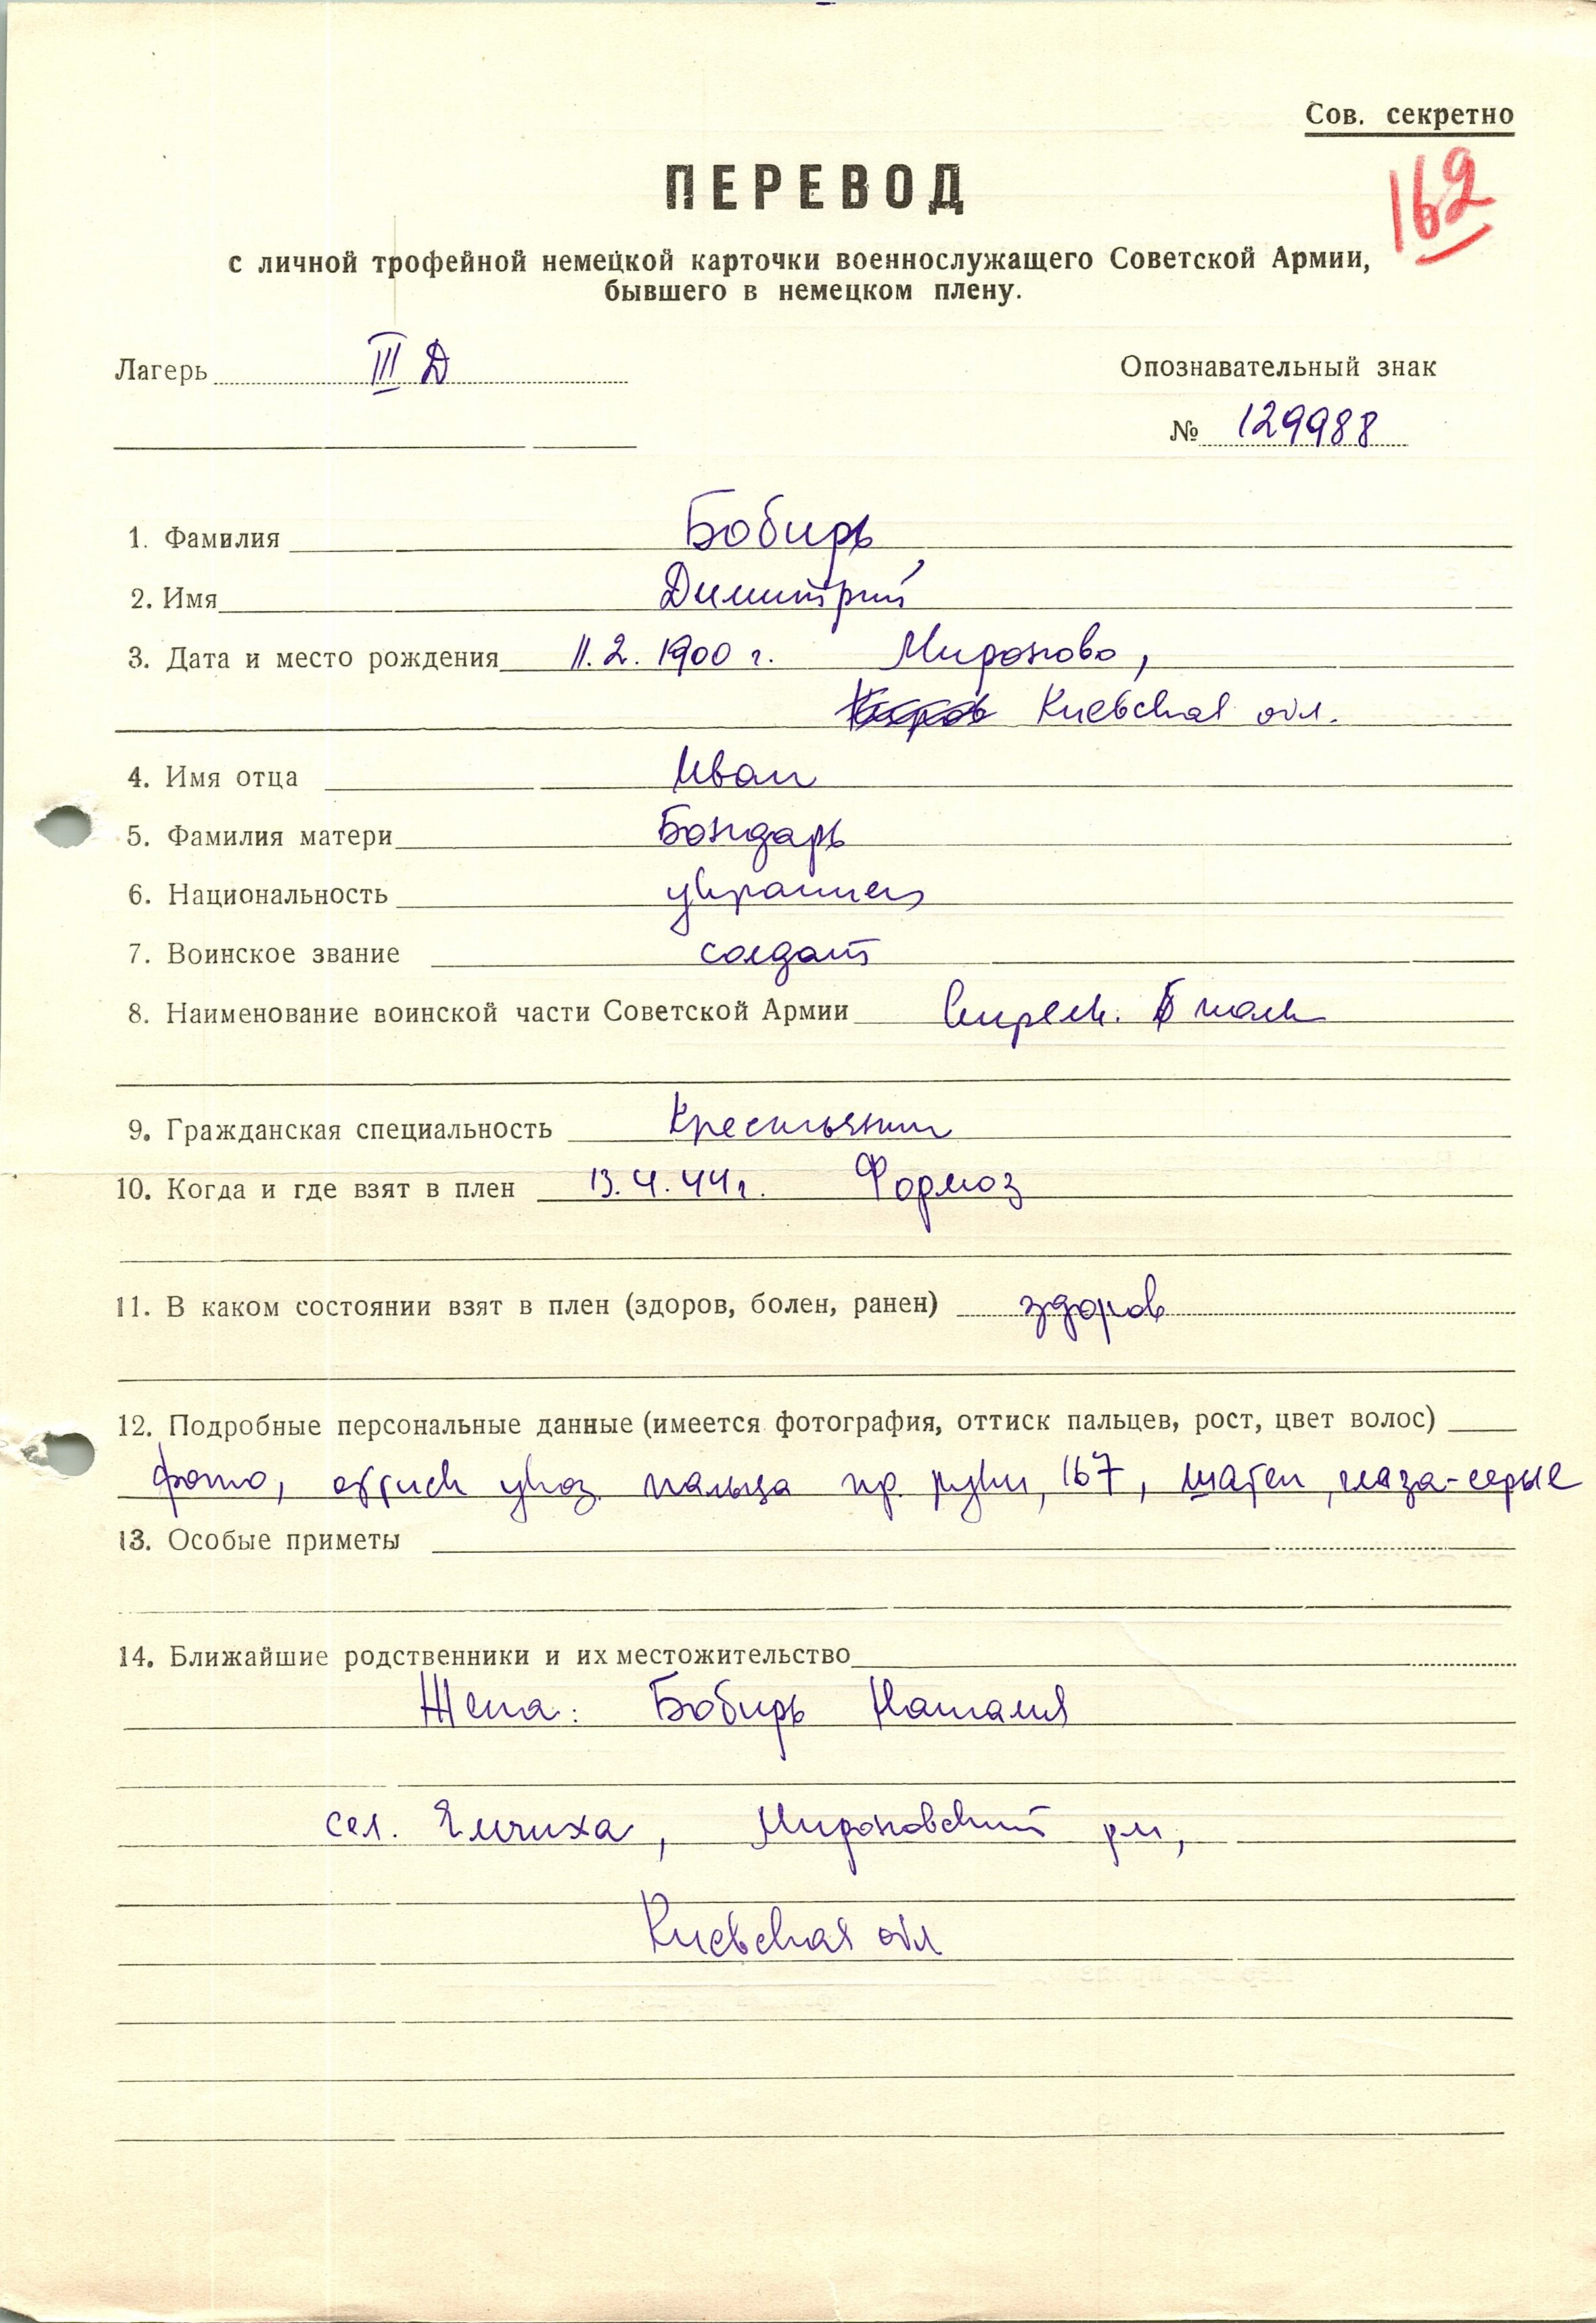 Сов. секретно
162
ПЕРЕВОД
с личной трофейной немецкой карточки военнослужащего Советской Армии,
бывшего в немецком плену.
Лагерь III Д
Опознавательный знак
№ 129988
1. Фамилия Бобирь
2. Имя Димитрий
3. Дата и место рождения 11.2.1900 г. Мироново,
Киевская обл.
4. Имя отца Иван
5. Фамилия матери Бондарь
6. Национальность украинец
7. Воинское звание солдат
8. Наименование воинской части Советской Армии
9. Гражданская специальность Крестьянин
10. Когда и где взят в плен 13.4.44г. Формоз
11. В каком состоянии взят в плен (здоров, болен, ранен) здоров
12. Подробные персональные данные (имеется фотография, оттиск пальцев, рост, цвет волос)
фото, оттиск указ. пальца пр. руки, 167, шатен, глаза-серые
13. Особые приметы
14. Ближайшие родственники и их местожительство
Жена: Бобирь Наталия
сел. Емчиха, Мироновский р-н,
Киевская обл